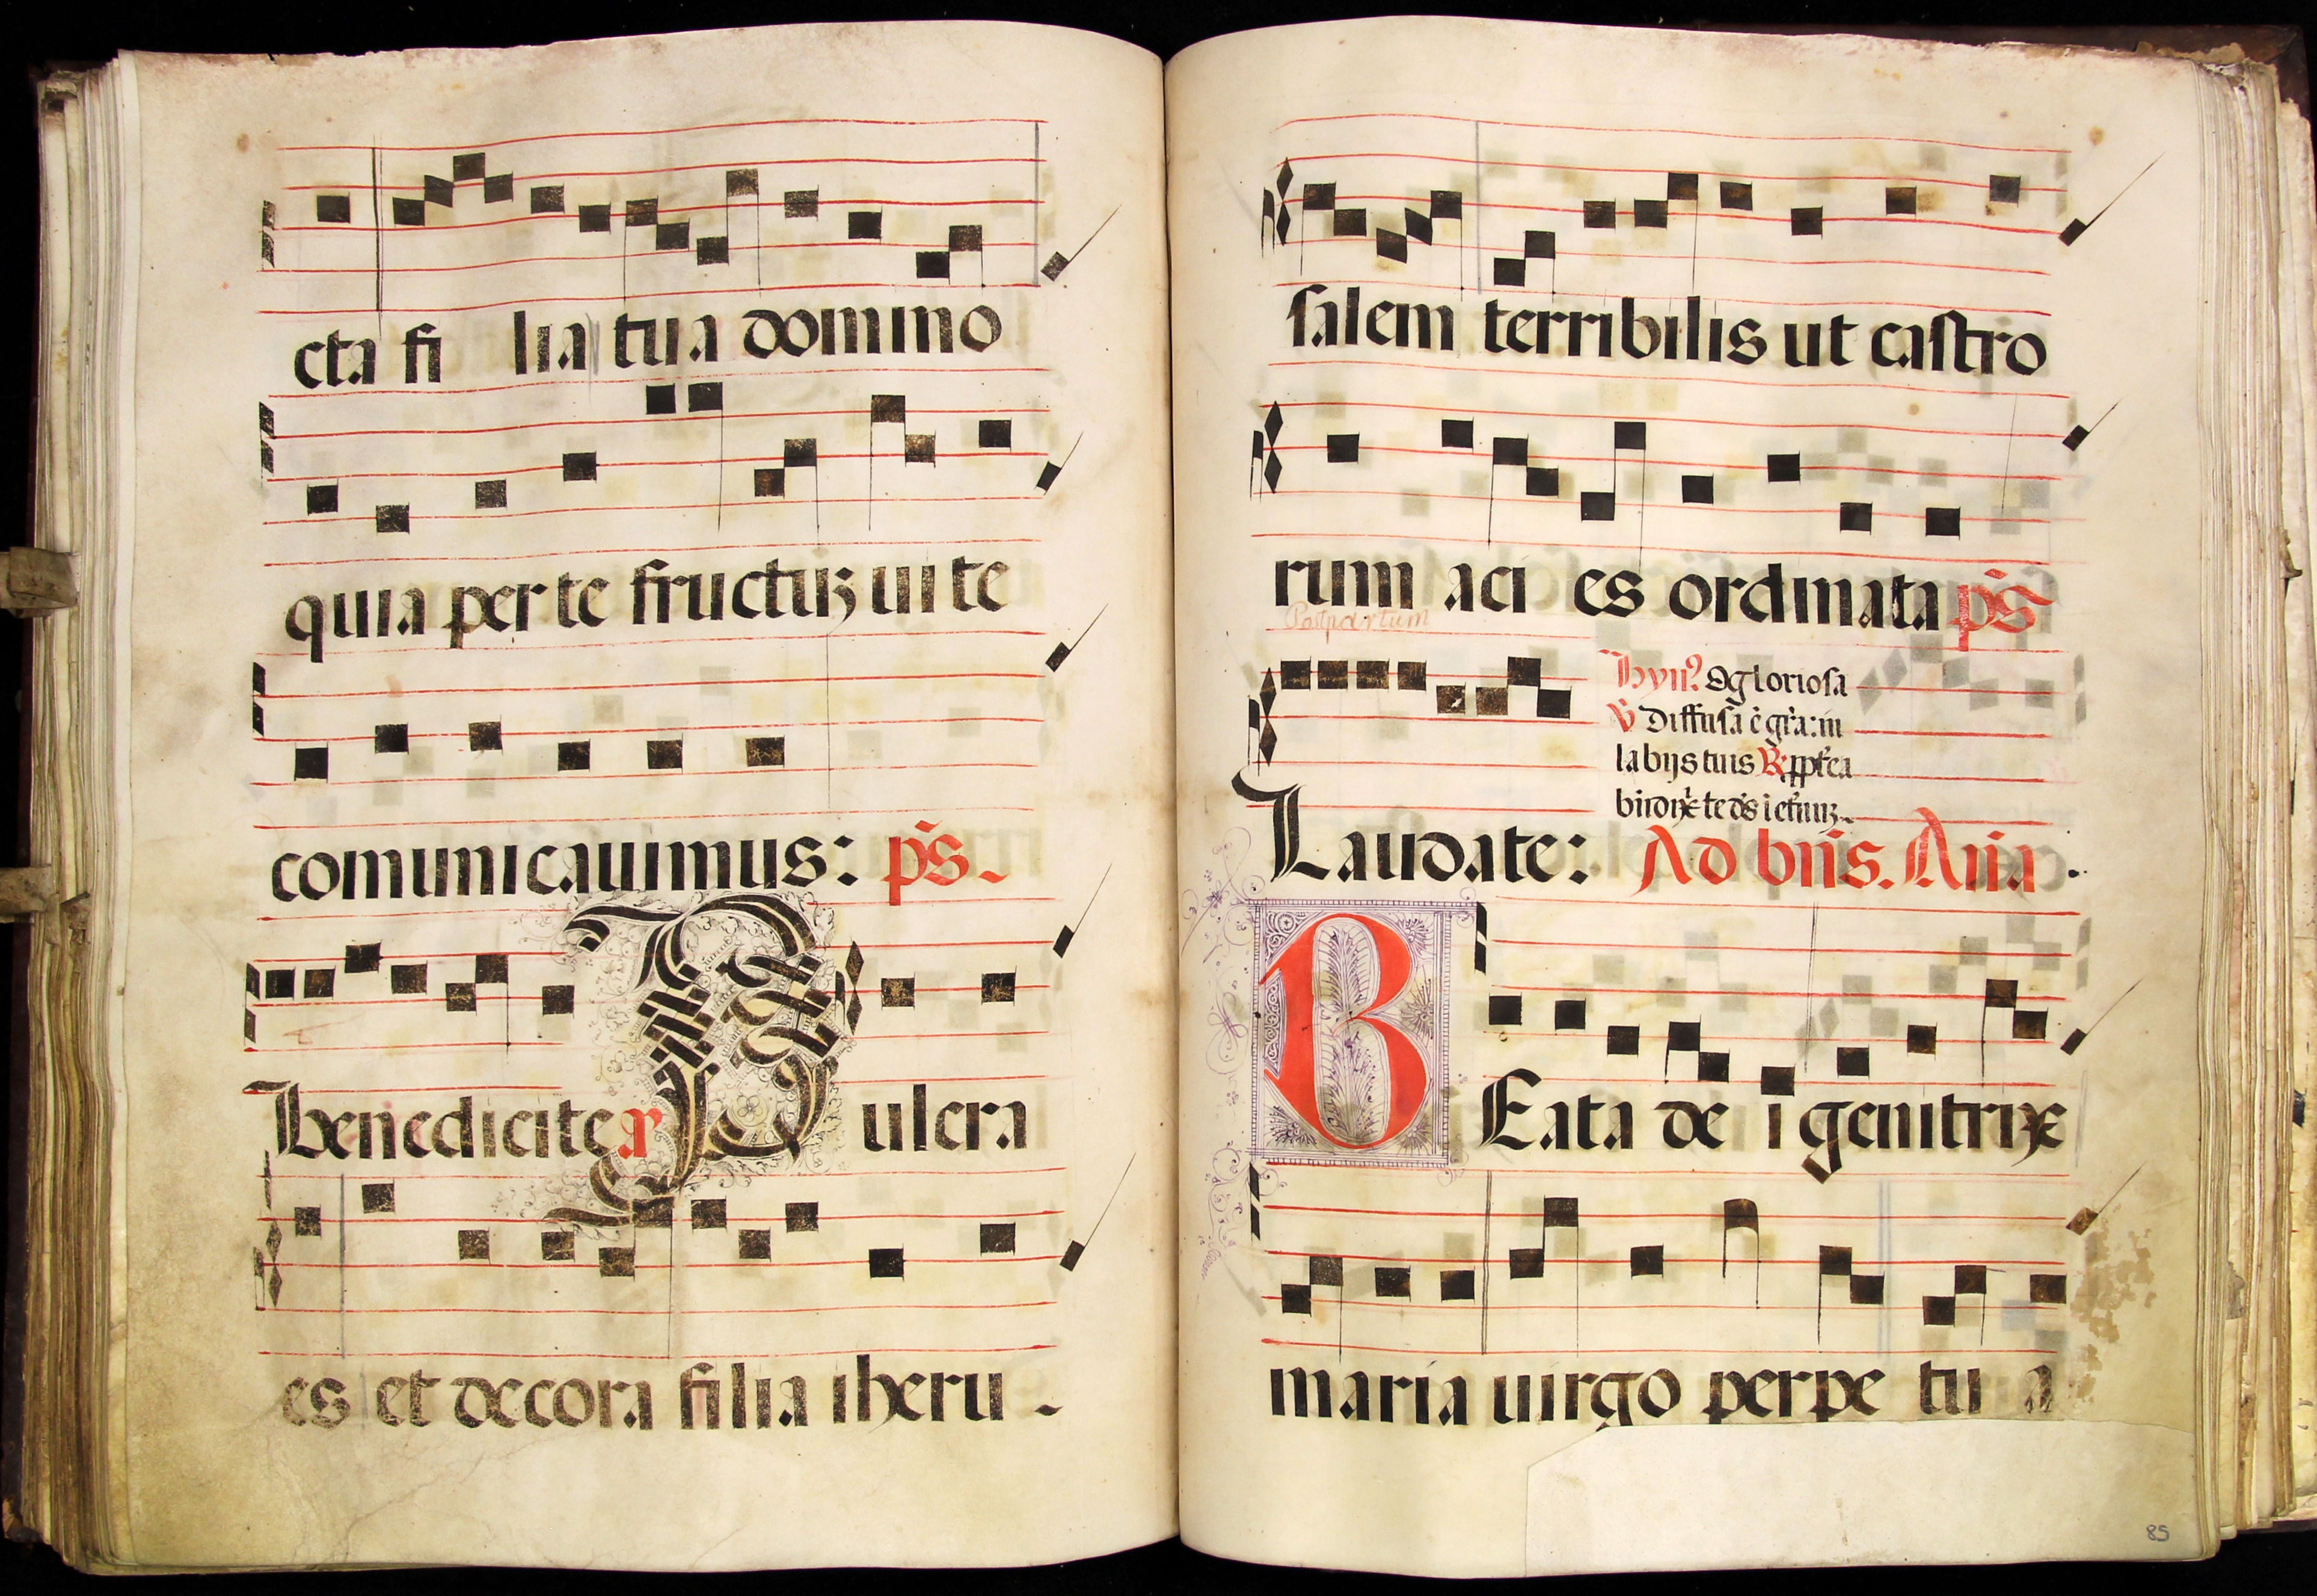 cta fi lia tua domino
quia per te fructuꝫ uite
comunicauimus: p̃s.
benedicite a P ulcra
es et decora filia iheru-
salem terribilis ut castro
rum aci es ordinata p̃s
Postpartum
Hyn? O gloriosa
V̓ Diffusa ē gr̃a: in
labijs tuis R̓ ppt̃ea
Laudate: Ad bn̄s. Ana.
B Eata de i genitrix
maria uirgo perpe tu a
85